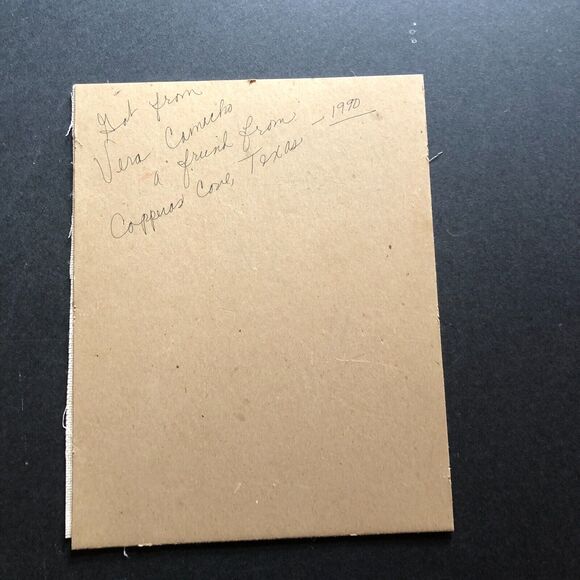 Got from
Vera Camacho
a friend from
Copperas Cove, Texas — 1990